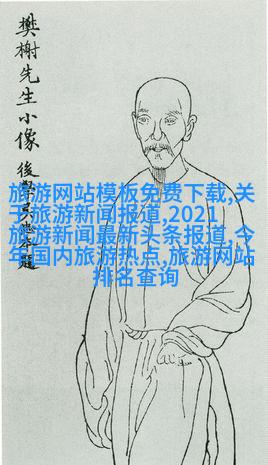 樊榭先生小像
後學 題
旅游网站模板免费下载,关
于旅游新闻报道,2021
旅游新闻最新头条报道,今
年国内旅游热点,旅游网站
排名查询